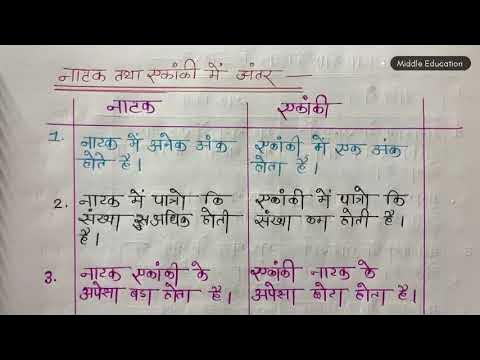 Middle Education
नाटक तथा एकांकी में अंतर —
नाटक एकांकी
1. नाटक में अनेक अंक
होते है।
एकांकी में एक अंक
होता है।
2. नाटक में पात्रो कि
संख्या अधिक होती
है।
एकांकी में पात्रो कि
संख्या कम होती है।
3. नाटक एकांकी के
अपेक्षा बडा होता है।
एकांकी नाटक के
अपेक्षा छोटा होता है।